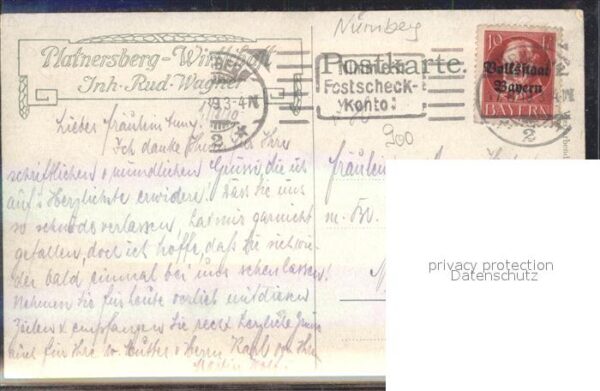 Nürnberg
Platnersberg-Wirtschaft
Inh. Rud. Wagner
Postkarte.
Nimm ein
Postscheck-
Konto!
10
Volksstaat
Bayern
BAYERN
9.3-4 N
2
2
900
Liebes Fräulein
Ich danke Ihnen Ihre
schriftlichen u. mündlichen Grüsse, die ich
auf's Herzlichste erwidere. Dass Sie uns
so schnöde verlassen, hat mir garnicht
gefallen, doch ich hoffe, dass Sie sich wie-
der bald einmal bei uns sehen lassen.
Nehmen Sie für heute vorlieb mit diesen
Zeilen & empfangen Sie recht herzliche Grüsse
auch für Ihre Mutter u. Herrn Karl von Ihr
Fräulein
privacy protection
Datenschutz